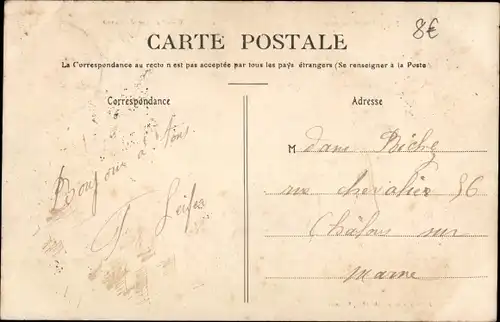 8€
CARTE POSTALE
La Correspondance au recto n est pas acceptée par tous les pays étrangers (Se renseigner à la Poste
Correspondance
Adresse
Bonjour a tous
Madame
rue chevalier 56
Châlons sur
marne